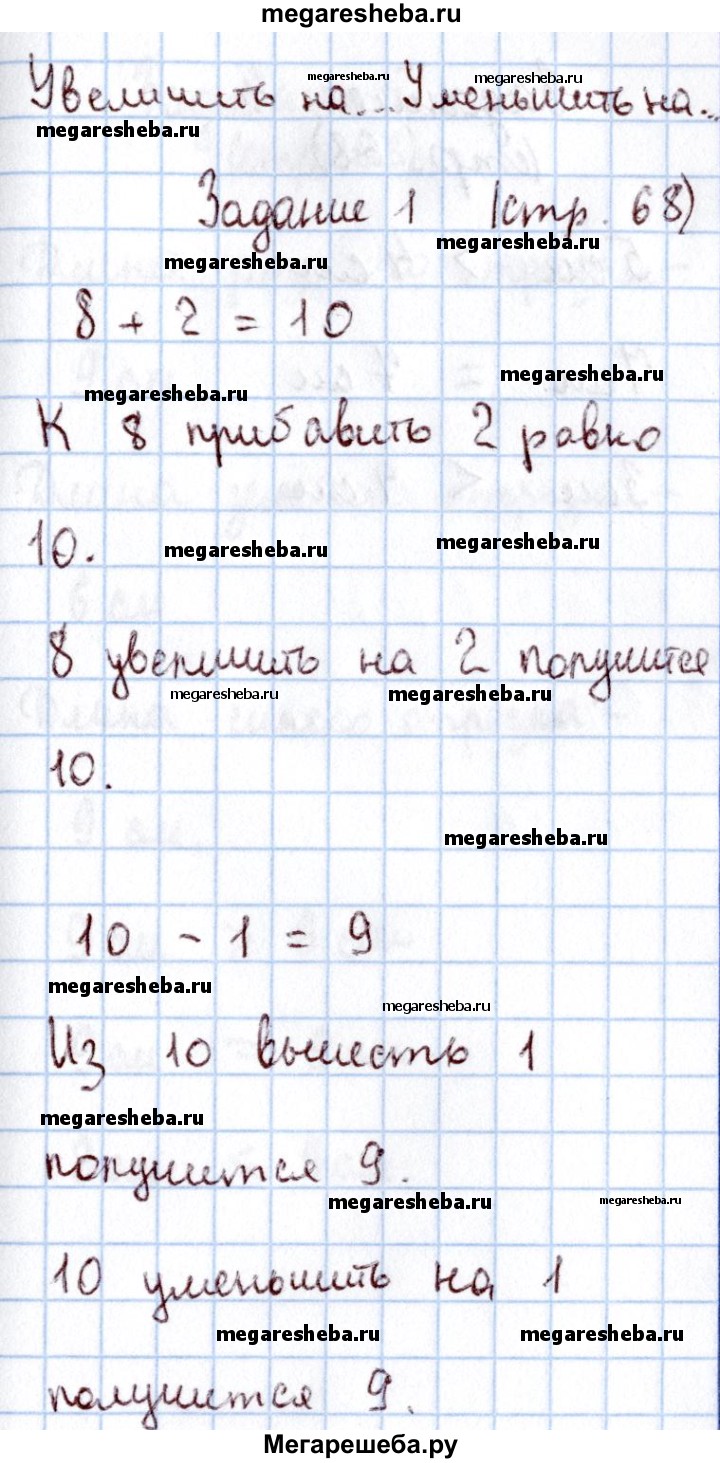 megaresheba.ru
megaresheba.ru
megaresheba.ru
Увеличить на... Уменьшить на...
megaresheba.ru
Задание 1 (стр. 68)
megaresheba.ru
megaresheba.ru
8 + 2 = 10
megaresheba.ru
megaresheba.ru
К 8 прибавить 2 равно
10.
megaresheba.ru
megaresheba.ru
8 увеличить на 2 получится
megaresheba.ru
megaresheba.ru
10.
megaresheba.ru
10 - 1 = 9
megaresheba.ru
megaresheba.ru
Из 10 вычесть 1
megaresheba.ru
получится 9.
megaresheba.ru
megaresheba.ru
10 уменьшить на 1
megaresheba.ru
megaresheba.ru
получится 9.
Мегарешеба.ру